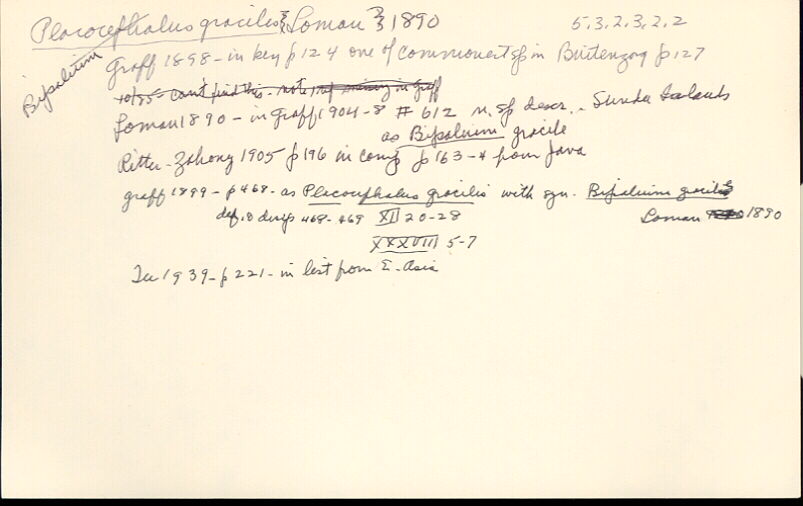 Placocephalus gracilis {Loman} 1890 5.3.2.3.2.2
Bipalium
Graff 1898 - in key p 124 one of commonest sp in Buitenzorg p 127
10/55 - can't find this - note, ref missing in Graff
Loman 1890 - in Graff 1904-8 # 612 n. sp descr. - Sunda Islands
as Bipalium gracile
Ritter-Zahony 1905 p 196 in comp p 163-4 from Java
Graff 1899 - p 468 - as Placocephalus gracilis with syn. Bipalium gracilis
Loman 1890
def. & descrip 468-469 XII 20-28
XXXVIII 5-7
Tu 1939 - p 221 - in list from E. Asia